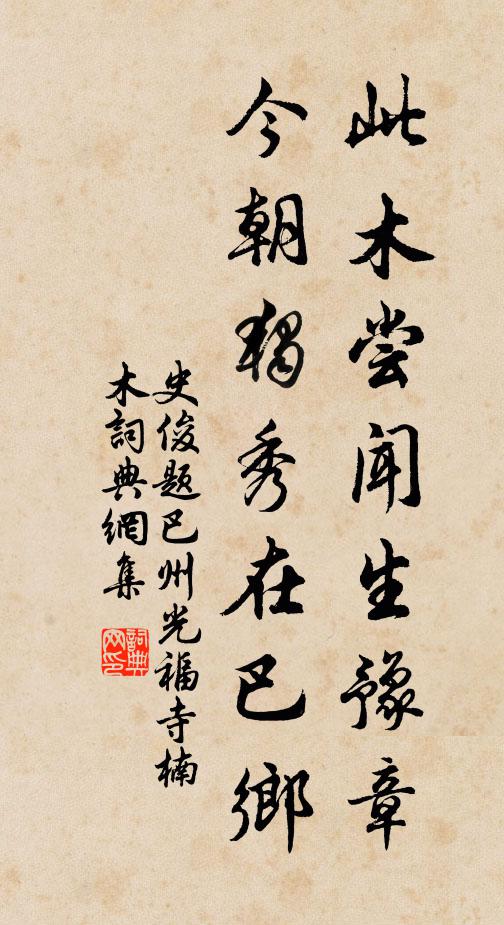 此木尝闻生豫章
今朝独秀在巴鄉
史俊题巴州光福寺楠
木詞典網集
詞典网印